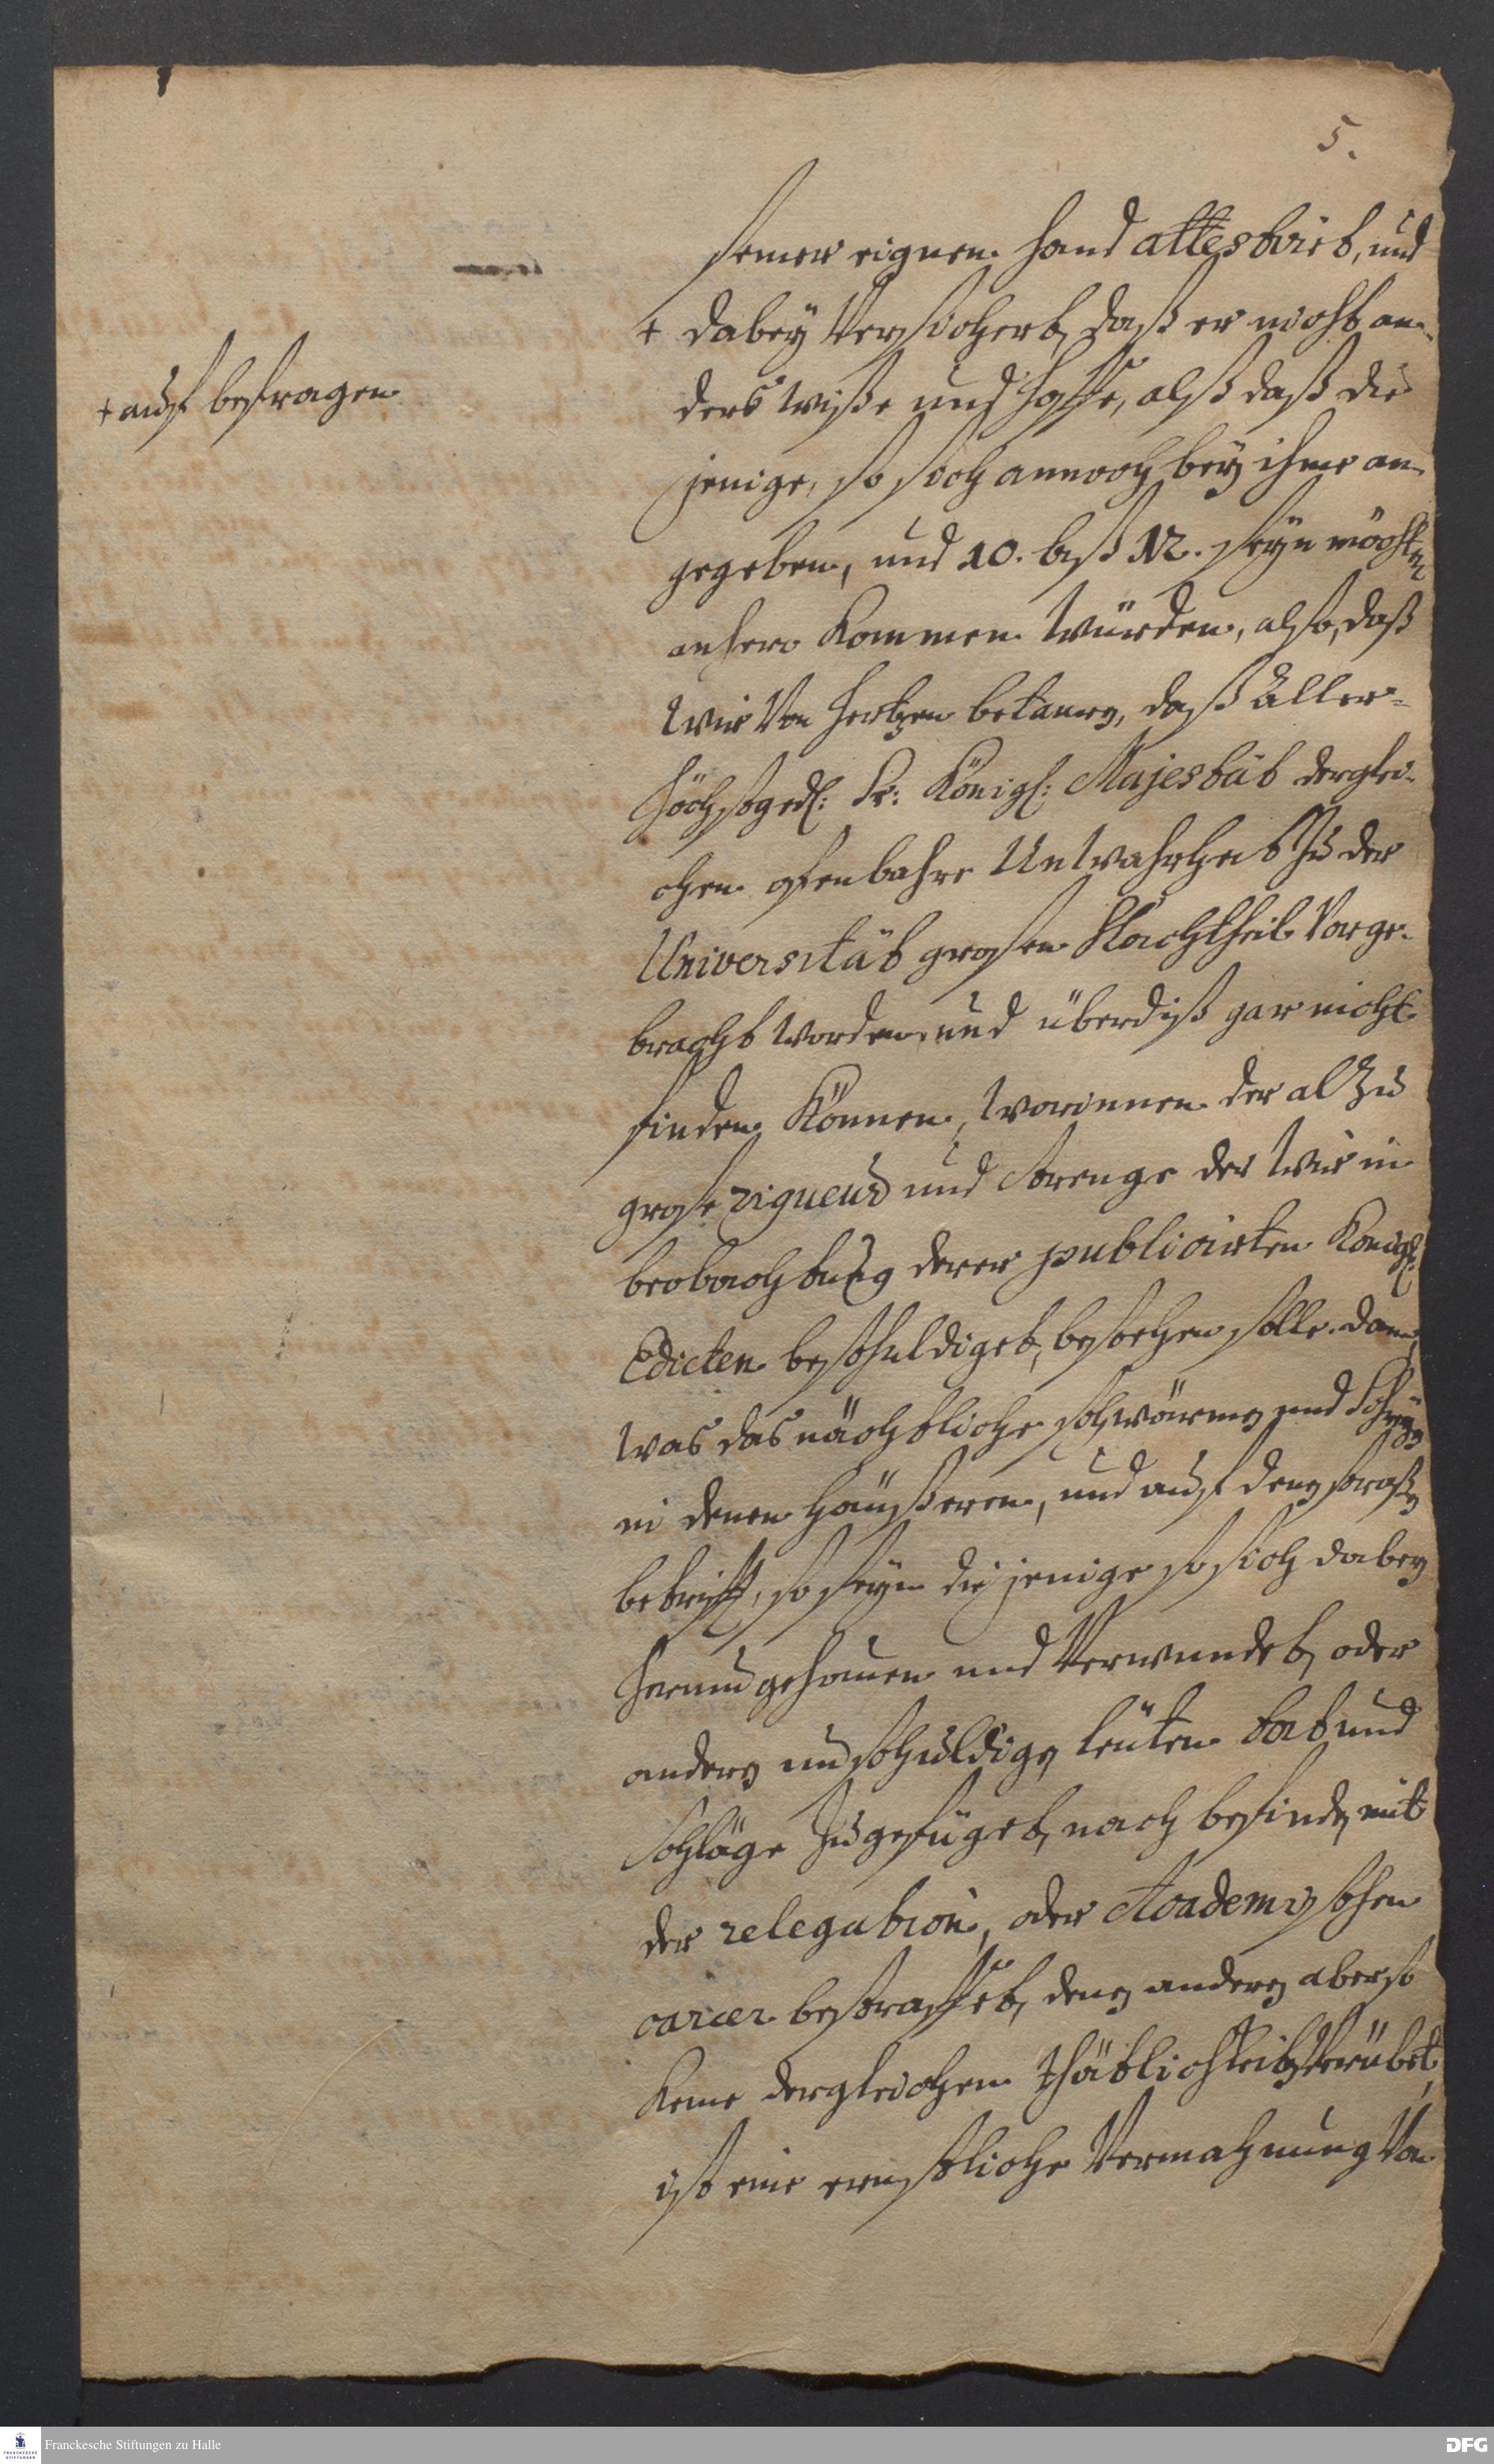 5.
seiner eignen hand attestiret, und
+ dabey Versichert, daß er nicht an-
+ auff befragen
ders wiße und hoffe, alß daß die
jenige, so sich annoch bey ihme an-
gegeben, und 10. biß 12. seyn möchten
anhero kommen würden, also, daß
wir Von hertzen betauren, daß Aller-
höchstged: Sr: Königl: Majestät derglei-
chen offenbahre Unwahrheit zu der
Universität großen Nachtheil Vorge-
bracht worden, und überdiß gar nicht
finden können, worinnen der al zu
große rigueur und strenge der wir in
beobachtung derer publicirten Königl:
Edicten beschuldiget, bestehen solle. dann,
was das nächtliche schwärmen und Schreyen
in denen häußeren, und auff denen straßen
betrifft, so seyn die jenige so sich dabey
herumgehauen und Verwundet, oder
andern unschuldigen leüten Tort und
Schläge zugefüget, nach befinden mit
der relegation, oder Academischen
carcer bestraffet, denen anderen aber so
keine dergleichen thätlichkeiten Verübet,
ist eine ernstliche Vermahnung Von
Franckesche Stiftungen zu Halle
DFG